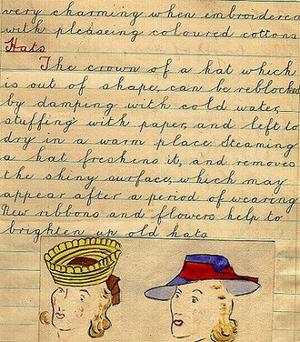 very charming when embroidered
with pleaseing coloured cottons
Hats
The crown of a hat which
is out of shape, can be reblocked
by damping with cold water,
stuffing with paper, and left to
dry in a warm place. Steaming
a hat freshens it, and removes
the shiny surface, which may
appear after a period of wearing
New ribbons and flowers help to
brighten up old hats